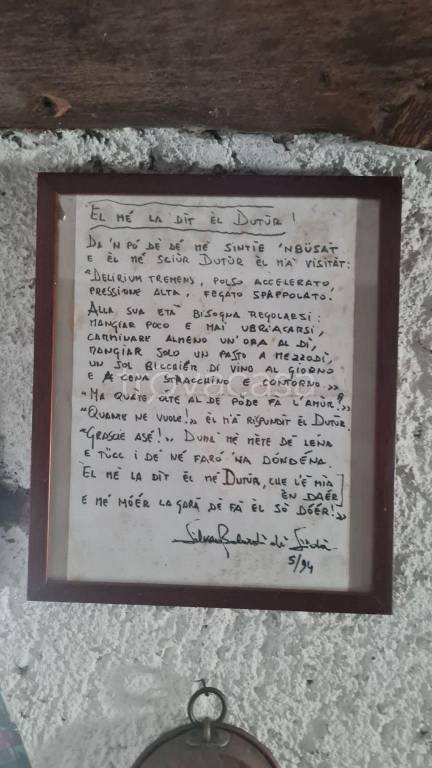 EL MÉ LA DÌT ÈL DUTÙR!
DA 'N PÓ DÈ DÉ MÉ SINTIE 'NBÜSAT
E ÈL MÉ SCIÙR DUTÙR ÈL M'À VISITÀT:
"DELIRIUM TREMENS, POLSO ACCELERATO,
PRESSIONE ALTA, FEGATO SPAPPOLATO.
ALLA SUA ETÀ BISOGNA REGOLARSI:
MANGIAR POCO E MAI UBRIACARSI,
CAMMINARE ALMENO UN'ORA AL DÌ,
MANGIAR SOLO UN PASTO A MEZZODÌ,
UN SOL BICCHIER DI VINO AL GIORNO
E A CENA STRACCHINO E CONTORNO»
"MA QUATE OLTE AL DÈ PÓDE FÀ L'AMÙR?»
"QUANTE NE VUOLE!» ÈL M'À RISPUNDÌT ÈL DUTÙR.
"GRASCIE ASÉ!» DUMÀ MÉ MÈTE DÈ LENA
E TÜCC I DÈ NÉ FARÓ 'NA DÓNDÉNA.
EL MÉ LA DÌT ÈL MÉ DUTÙR, CHE L'È MIA
ÈN DAÉR
E MÉ MÓÉR LA GARÀ DÈ FÀ ÈL SÒ DÓÉR!»
5/94
Ovacaso